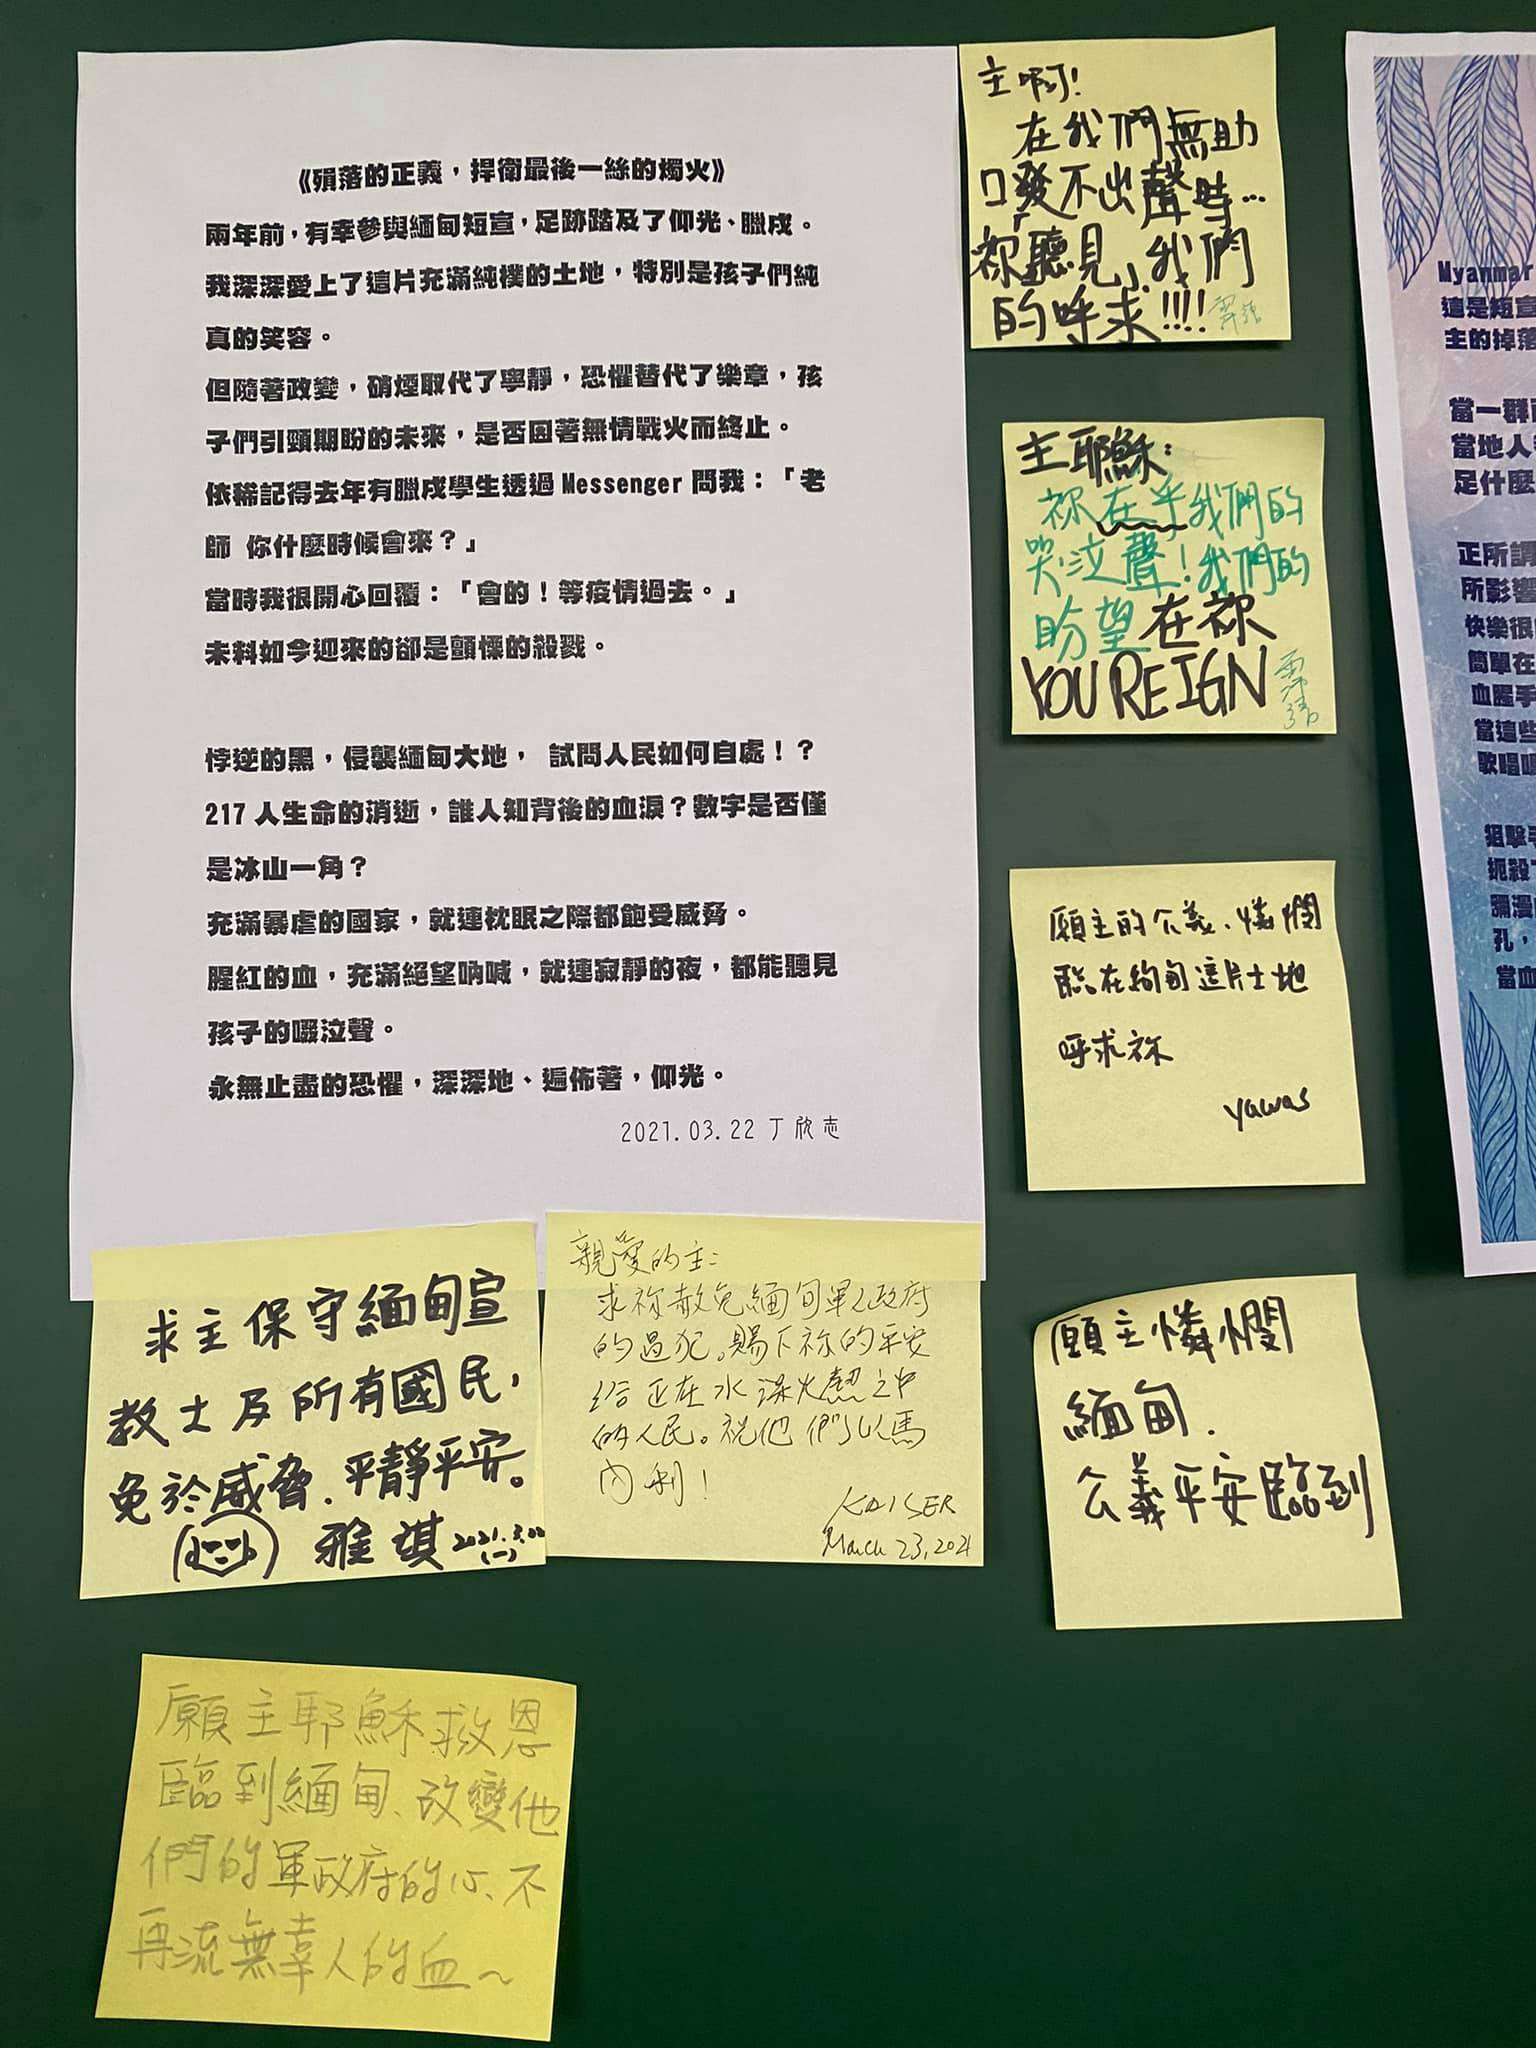 《殞落的正義，捍衛最後一絲的燭火》
兩年前，有幸參與緬甸短宣，足跡踏及了仰光、臘戌。
我深深愛上了這片充滿純樸的土地，特別是孩子們純
真的笑容。
但隨著政變，硝煙取代了寧靜，恐懼替代了樂章，孩
子們引頸期盼的未來，是否因著無情戰火而終止。
依稀記得去年有臘戌學生透過 Messenger 問我：「老
師 你什麼時候會來？」
當時我很開心回覆：「會的！等疫情過去。」
未料如今迎來的卻是顫慄的殺戮。
悖逆的黑，侵襲緬甸大地， 試問人民如何自處！？
217 人生命的消逝，誰人知背後的血淚？數字是否僅
是冰山一角？
充滿暴虐的國家，就連枕眠之際都飽受威脅。
腥紅的血，充滿絕望吶喊，就連寂靜的夜，都能聽見
孩子的啜泣聲。
永無止盡的恐懼，深深地、遍佈著，仰光。
2021.03.22 丁欣志
主啊！
在我們無助
口發不出聲時…
祢「聽見」我們
的呼求!!!!
主耶穌：
祢在乎我們的
哭泣聲！我們的
盼望在祢
YOU REIGN
願主的公義、憐憫
臨在緬甸這片土地
呼求祢
yawas
願主憐憫
緬甸.
公義平安臨到
求主保守緬甸宣
教士及所有國民，
免於威脅、平靜平安。
雅淇 2021.3.22
(一)
親愛的主：
求祢赦免緬甸軍人政府
的過犯。賜下祢的平安
給正在水深火熱之中
的人民。祝他們以馬
內利！
KAISER
March 23, 2021
願主耶穌救恩
臨到緬甸、改變他
們的軍政府的心、不
再流無辜人的血～
Myanmar
這是短宣
主的掉落
當一群
當地人
足什麼
正所謂
所影響
快樂很
簡單在
血腥手
當這些
歌唱
狙擊手
扼殺
瀰漫
孔，
當血